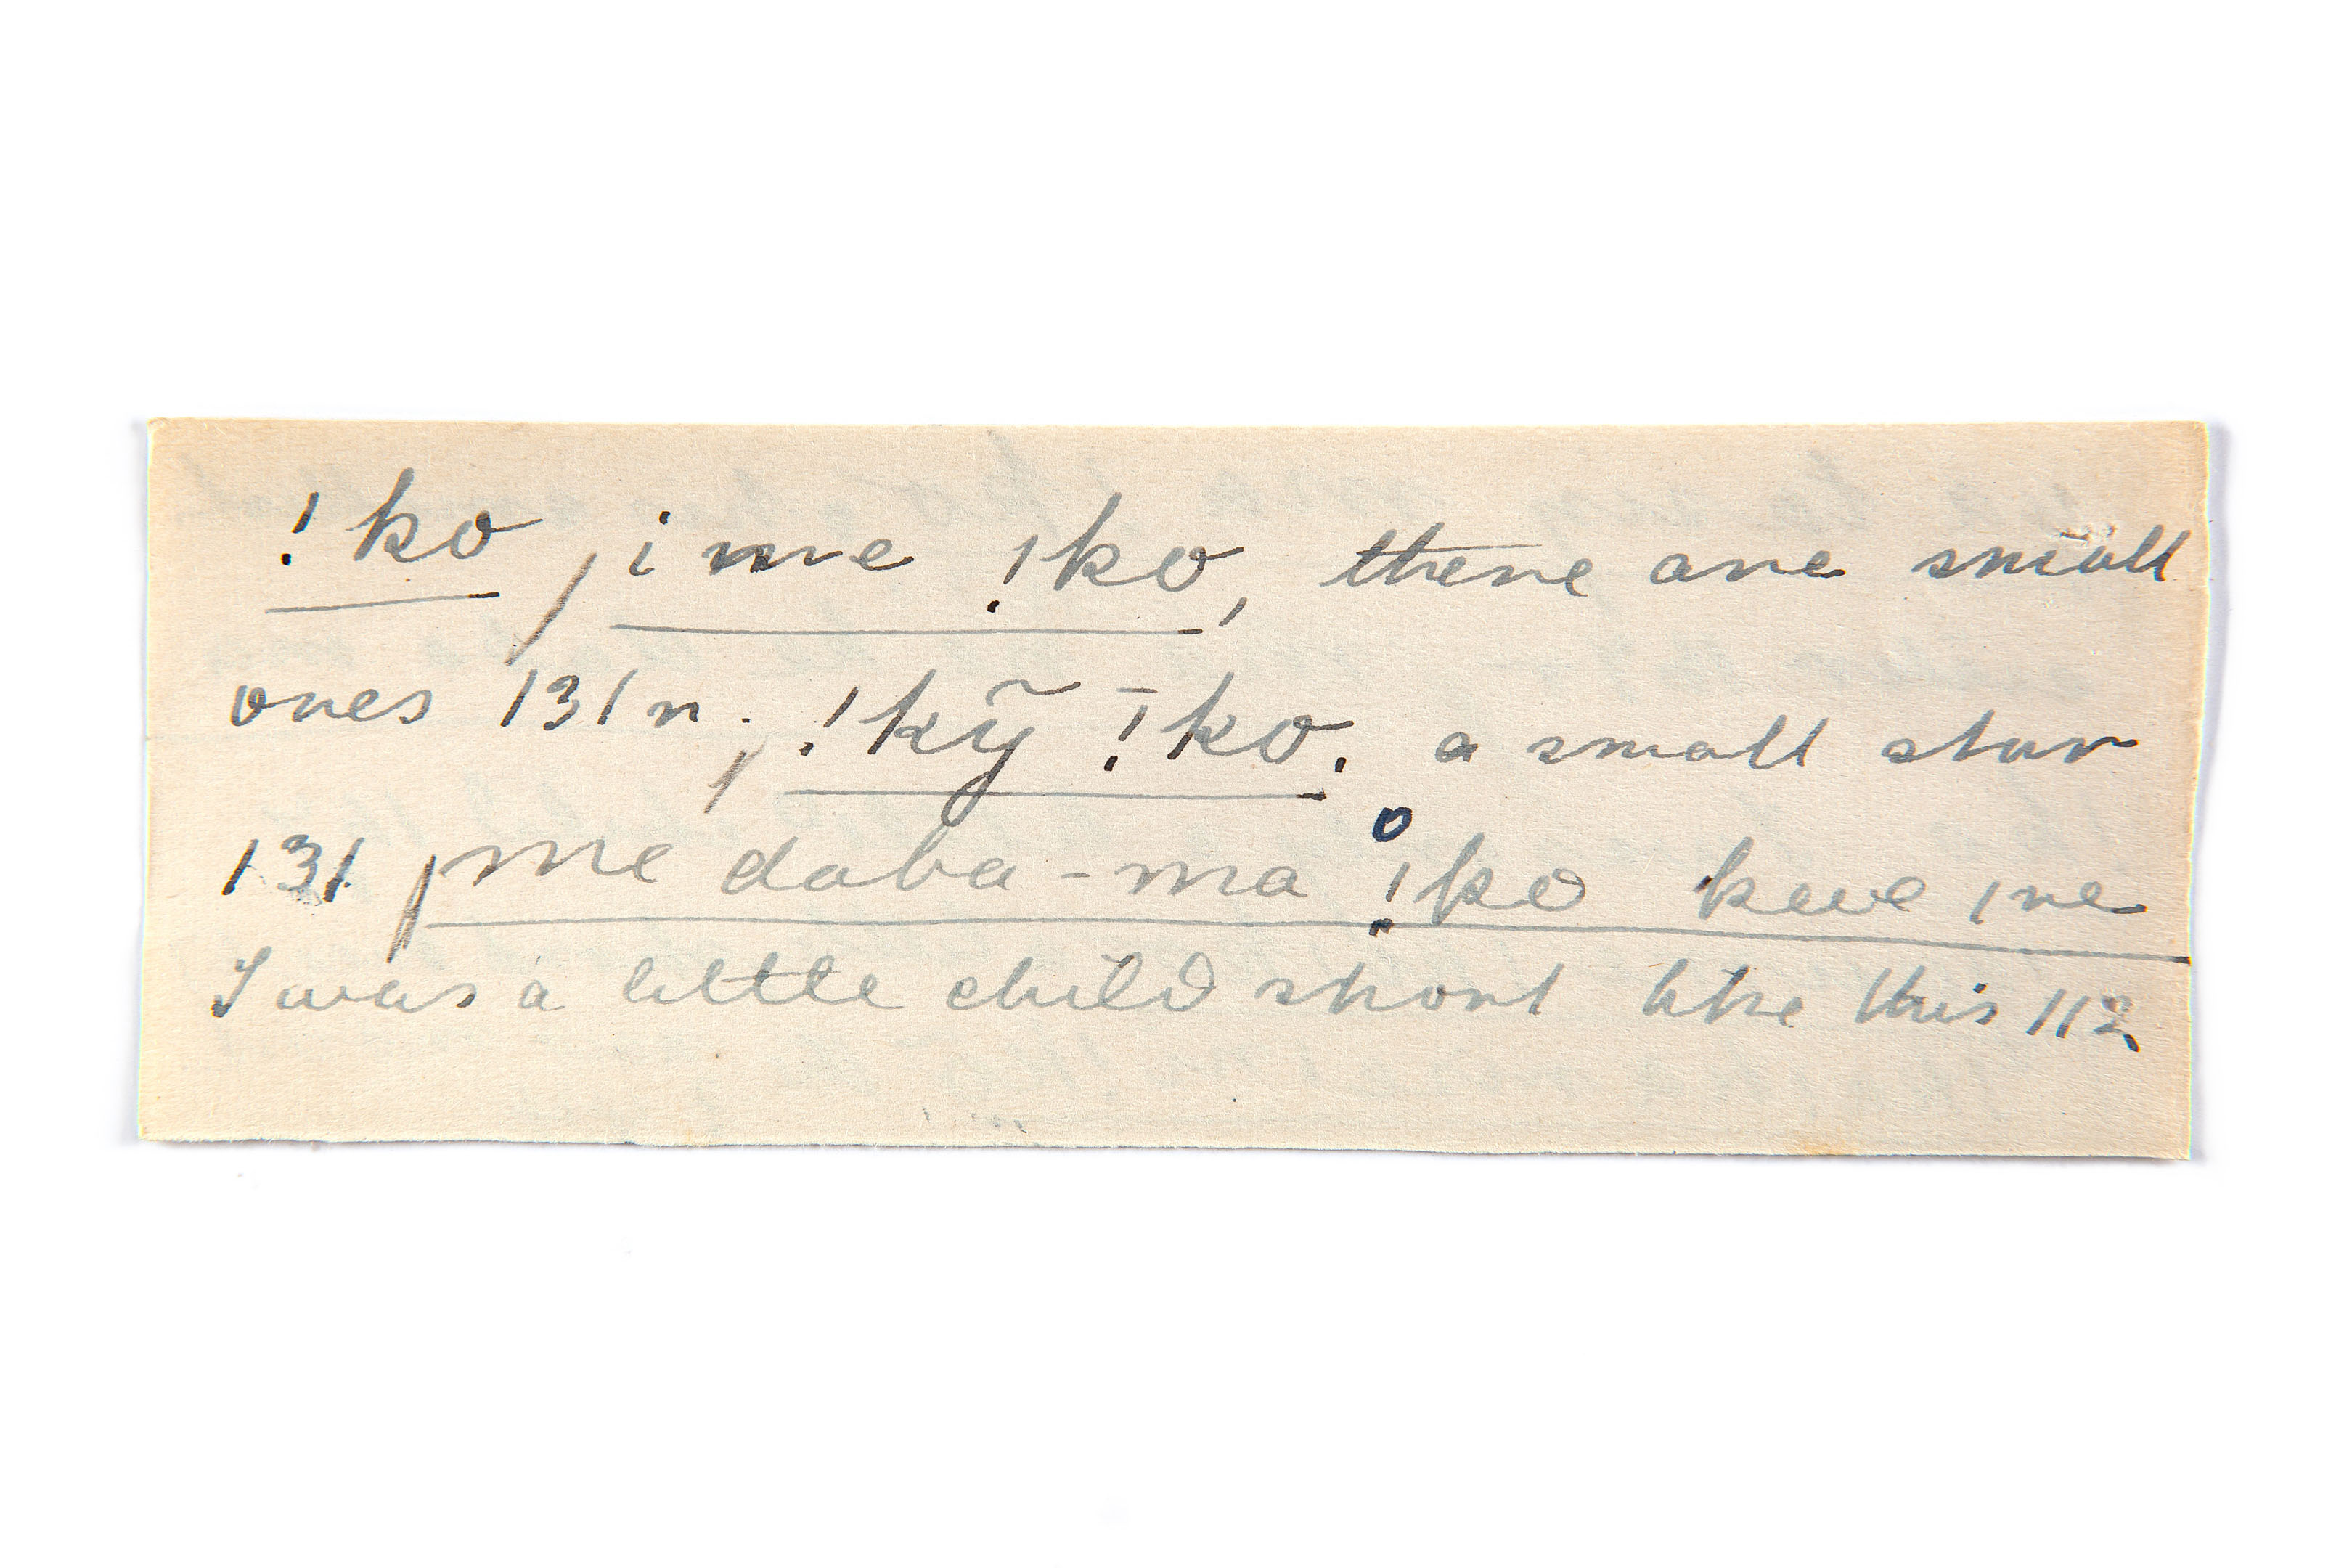 !ko, i me !ko, there are small
ones 131 n., !kỹ !̄ko. a small star
131, me daba-ma !̊ko keve !re
I was a little child short like this 112